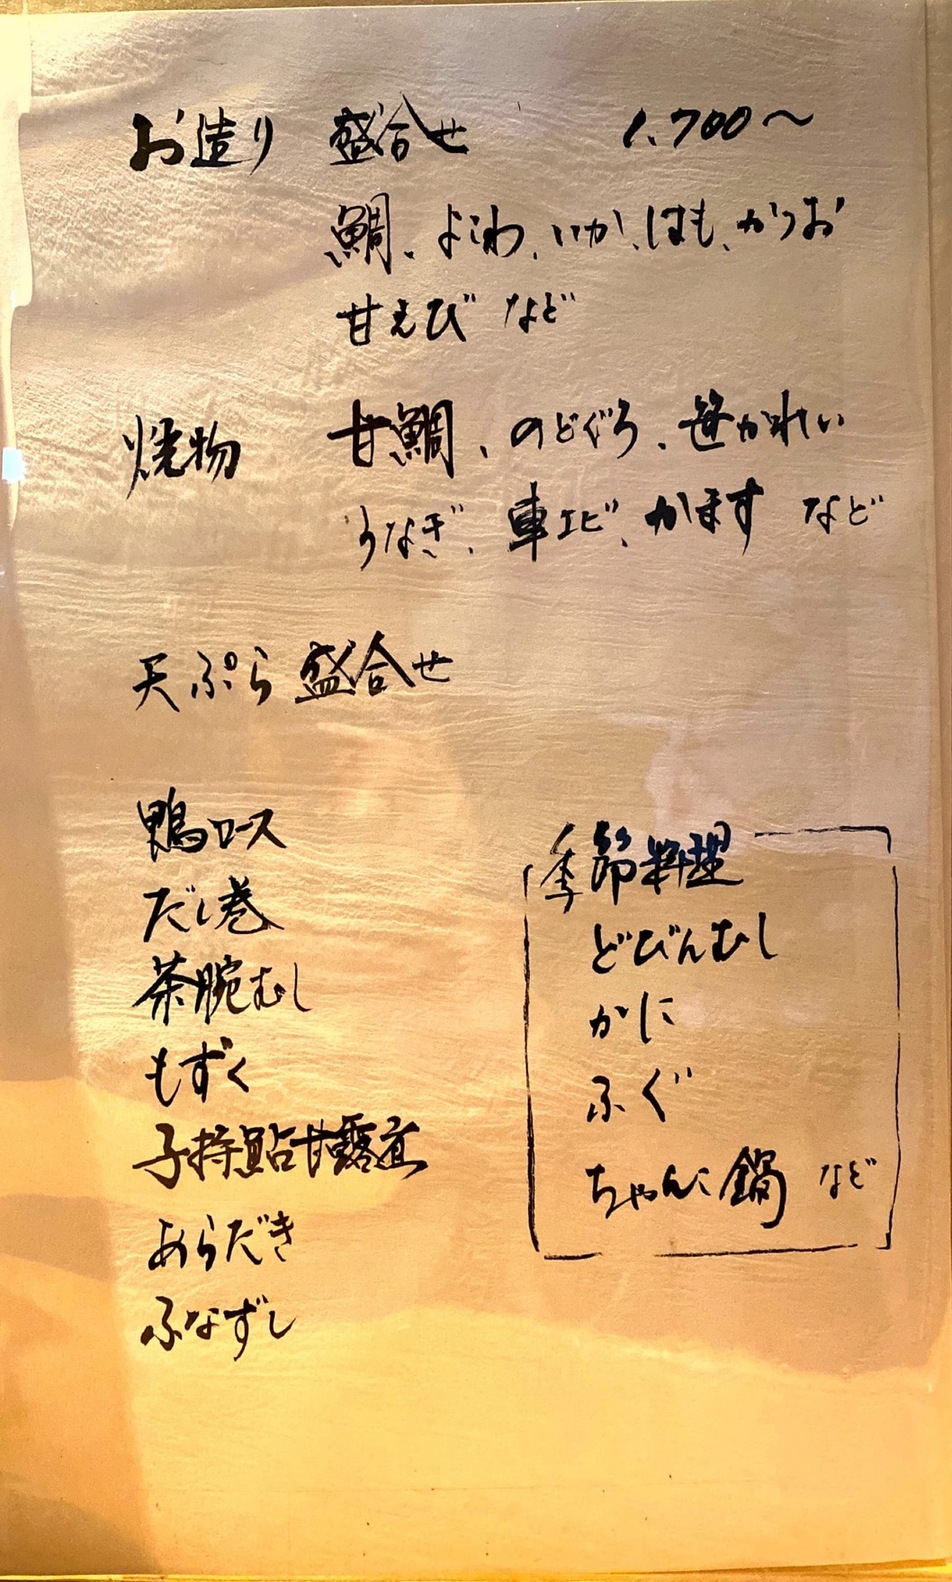 お造り 盛合せ 1.700〜
鯛、よこわ、いか、はも、かつお
甘えび など
焼物 甘鯛、のどぐろ、笹かれい
うなぎ、車エビ、かます など
天ぷら 盛合せ
鴨ロース
だし巻
茶腕むし
もずく
子持鮎甘露煮
あらだき
ふなずし
季節料理
どびんむし
かに
ふぐ
ちゃんこ鍋 など